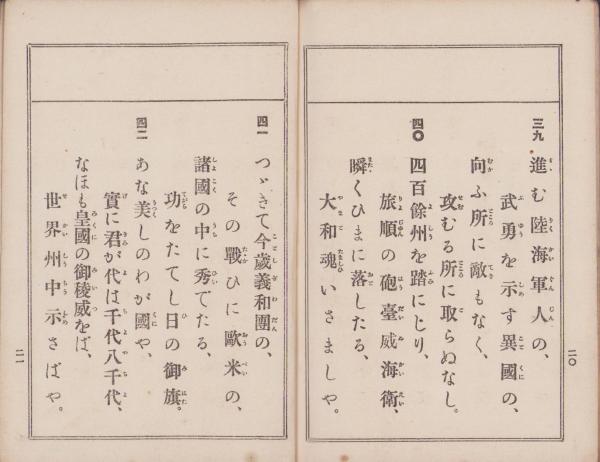 三九 進む陸海軍人の、
武勇を示す異國の、
向ふ所に敵もなく、
攻むる所に取らぬなし。
四〇 四百餘州を踏にじり、
旅順の砲臺威海衛、
瞬くひまに落したる、
大和魂いさましや。
二〇
四一 つゞきて今歲義和團の、
その戰ひに歐米の、
諸國の中に秀でたる、
功をたてし日の御旗。
四二 あな美しのわが國や、
實に君が代は千代八千代、
なほも皇國の御稜威をば、
世界州中示さばや。
二一